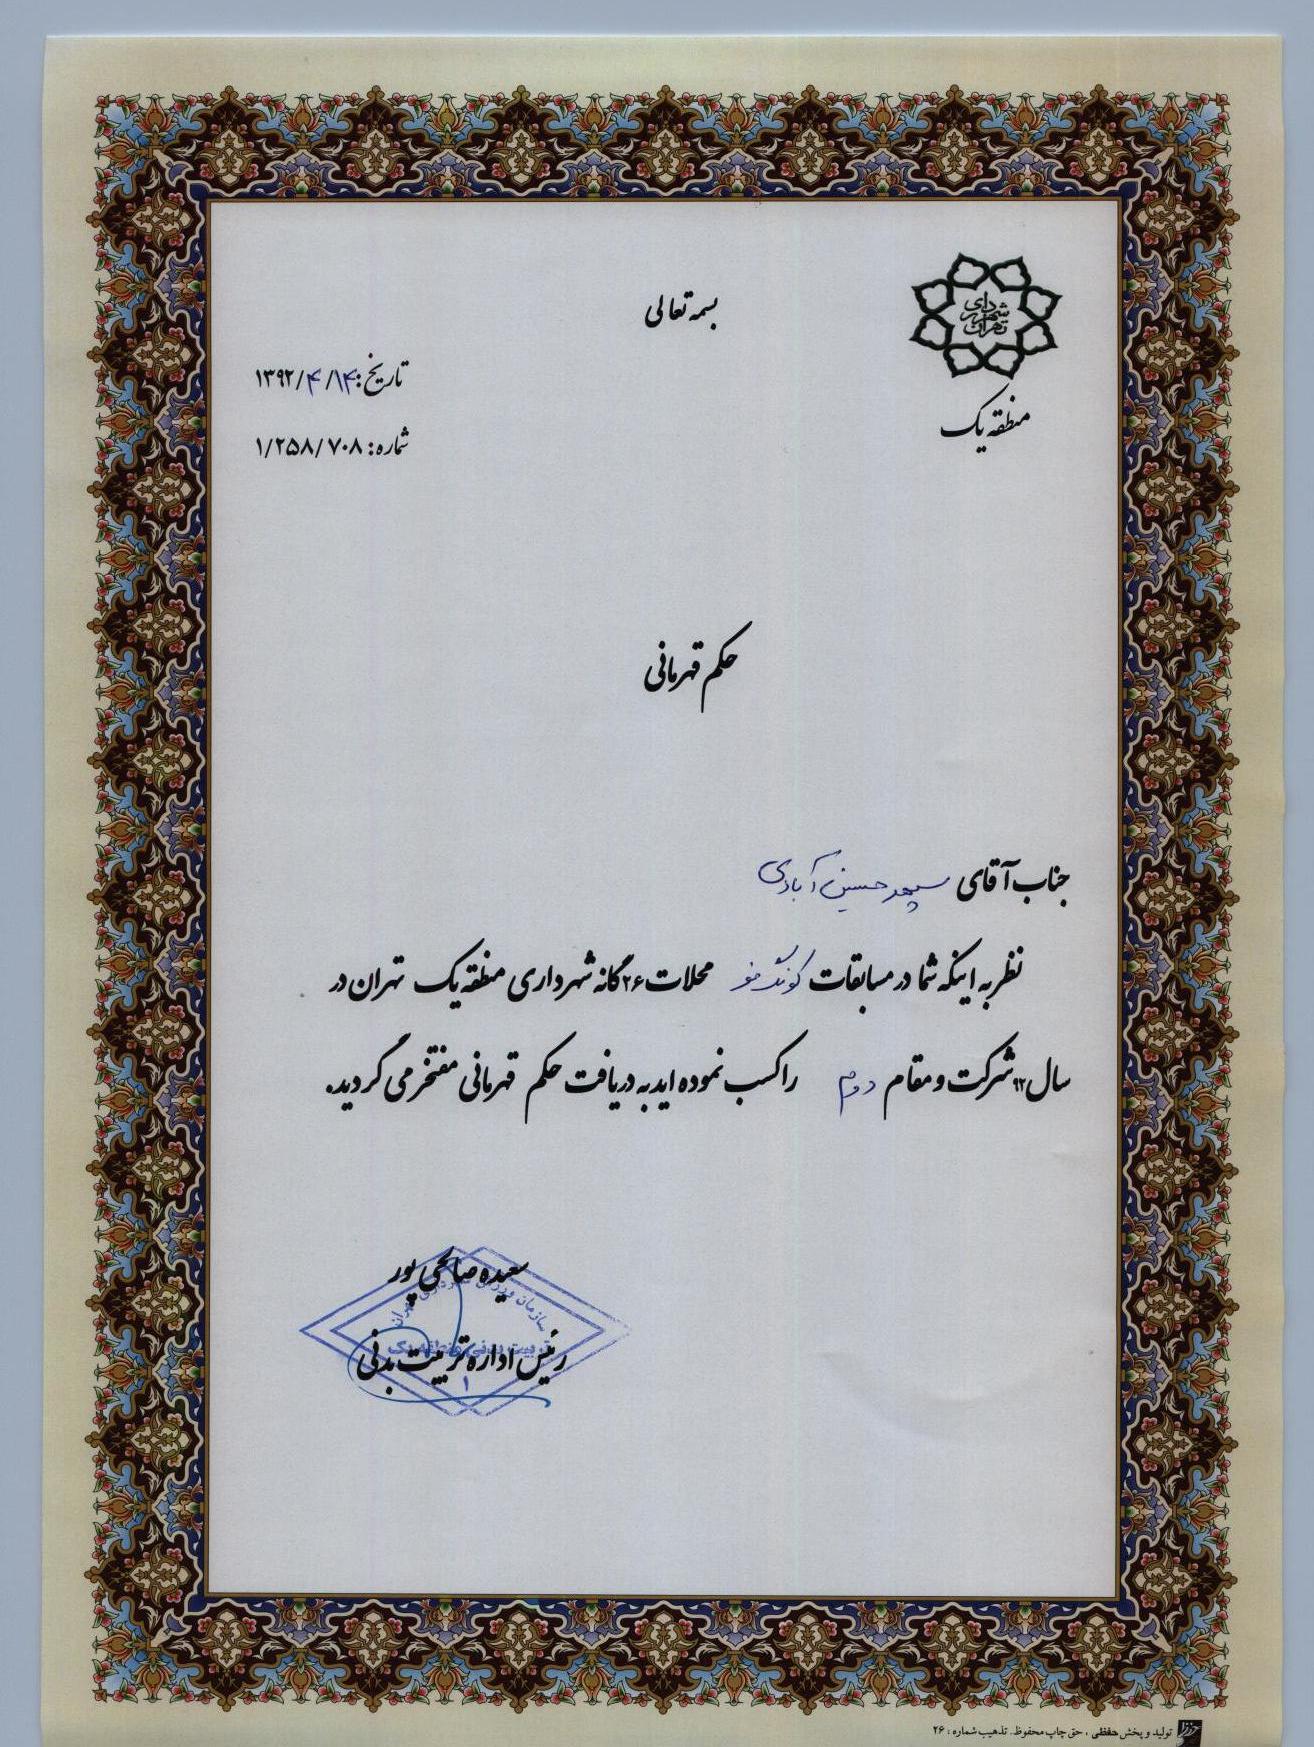 بسمه تعالی
شهرداری تهران
منطقه یک
تاریخ: ۱۳۹۲/۴/۱۴
شماره: ۱/۲۵۸/۷۰۸
حکم قهرمانی
جناب آقای سپهر حسین آبادی
نظر به اینکه شما در مسابقات کونگ فو محلات ۲۶ گانه شهرداری منطقه یک تهران در
سال ۹۲ شرکت و مقام دوم را کسب نموده اید به دریافت حکم قهرمانی مفتخر می گردید.
سعیده صالحی پور
سازمان ورزش شهرداری تهران
تربیت بدنی منطقه یک
رئیس اداره تربیت بدنی
۱
تولید و پخش حفظی ، حق چاپ محفوظ. تذهیب شماره : ۲۶